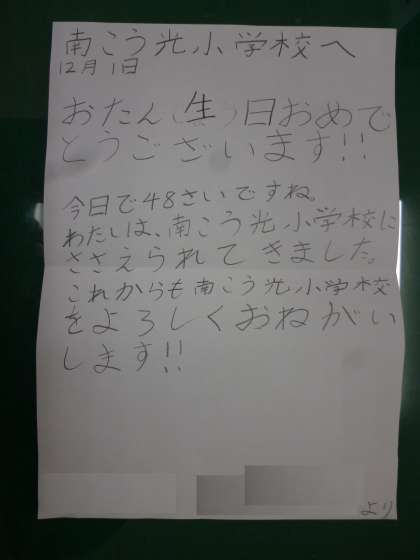 南こう光小学校へ
12月1日
おたん(生)日おめで
とうございます!!
今日で48さいですね。
わたしは、南こう光小学校に
ささえられてきました。
これからも南こう光小学校
をよろしくおねがい
します!!
より